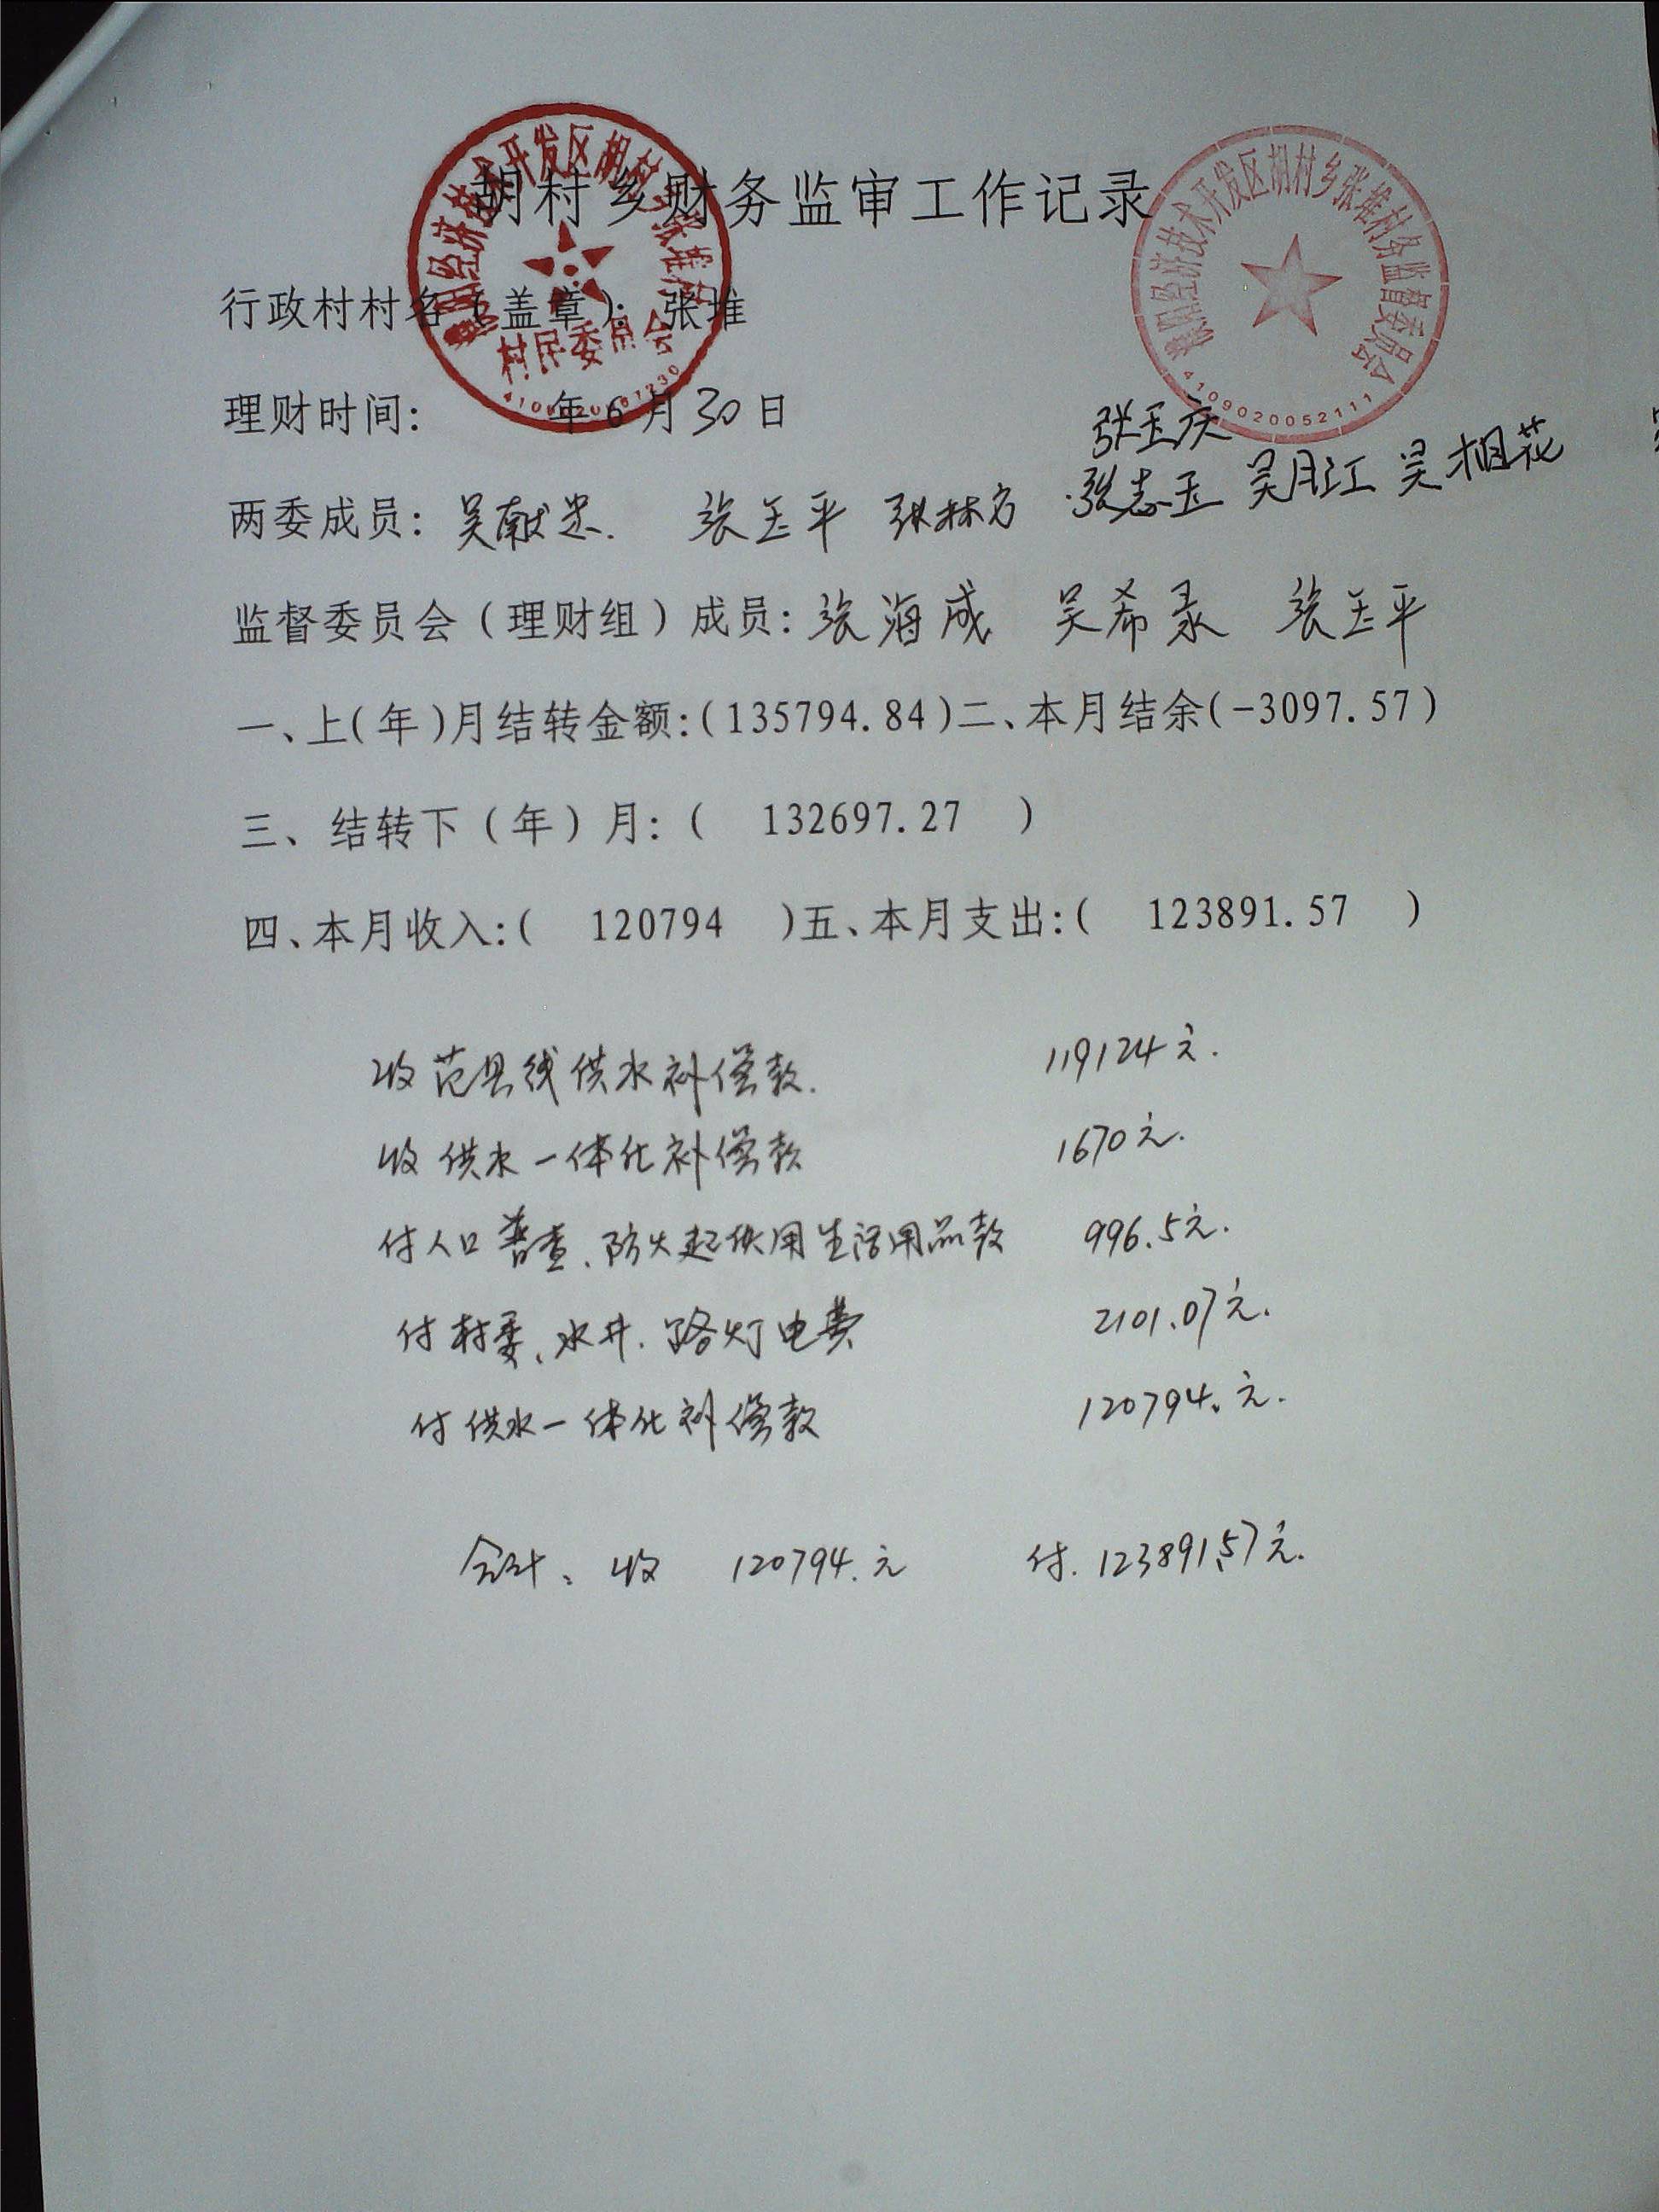 胡村乡财务监审工作记录
行政村村名（盖章）：张堆
理财时间：　　年6月30日
张玉庆
两委成员：吴献忠.　张玉平　张林方　张志玉　吴月江　吴相花
监督委员会（理财组）成员：张海成　吴希录　张玉平
一、上(年)月结转金额:(135794.84)二、本月结余(-3097.57)
三、结转下（年）月:(　132697.27　)
四、本月收入:(　120794　)五、本月支出:(　123891.57　)
收范县线供水补偿款.　119124元.
收供水一体化补偿款　1670元.
付人口普查、防火起伙用生活用品款　996.5元.
付村委、水井.路灯电费　2101.07元.
付供水一体化补偿款　120794.元.
合计、收　120794.元　付.123891.57元.
村民委员会
濮阳经济技术开发区胡村乡张堆村务监督委员会
4109020052111